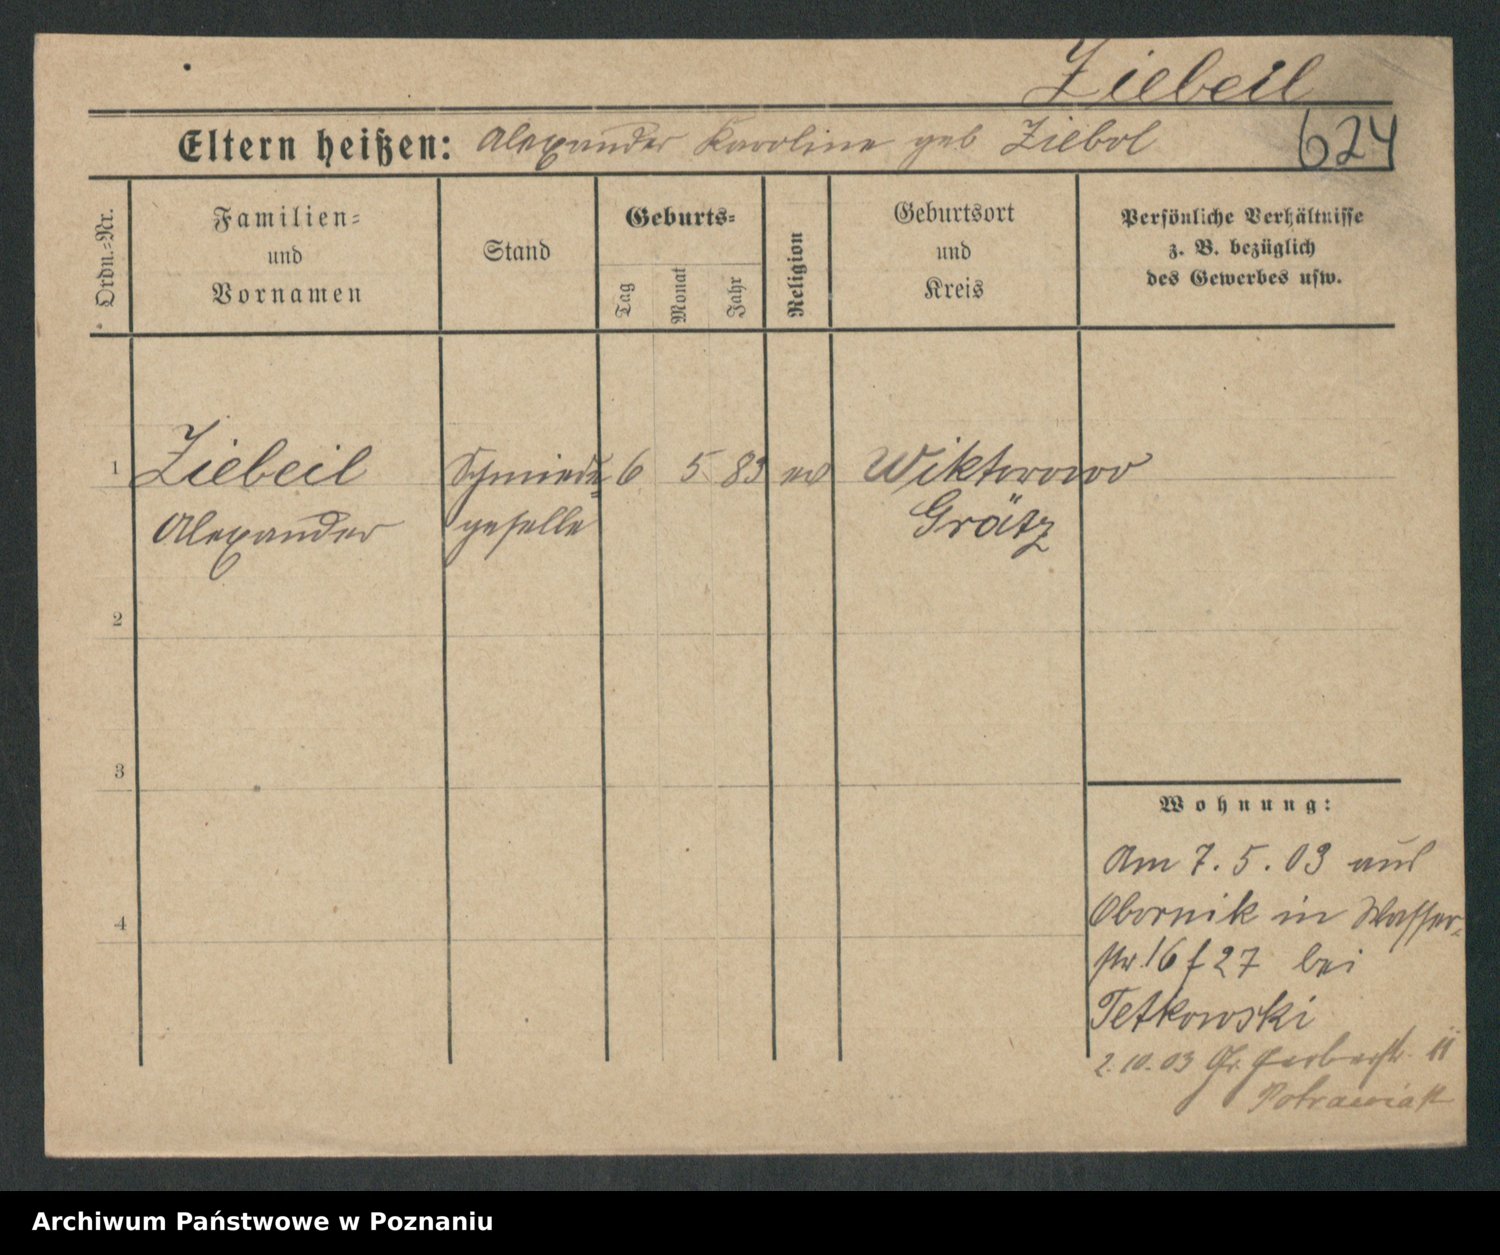 Ziebeil
Eltern heißen: Alexander Karoline geb Ziebol
624
Ordn.-Nr.
Familien-
und
Vornamen
Stand
Geburts-
Tag
Monat
Jahr
Religion
Geburtsort
und
Kreis
Persönliche Verhältnisse
z. B. bezüglich
des Gewerbes usw.
1 Ziebeil Schmiede- 6 5 83 ev Wiktorowo
Alexander geselle Grätz
2
3
4
Wohnung:
Am 7.5.03 aus
Obornik in Wasser-
str. 16 f 27 bei
Tetkowski
2.10.03 Gr. Gerberstr. 11
Potrawiak
Archiwum Państwowe w Poznaniu